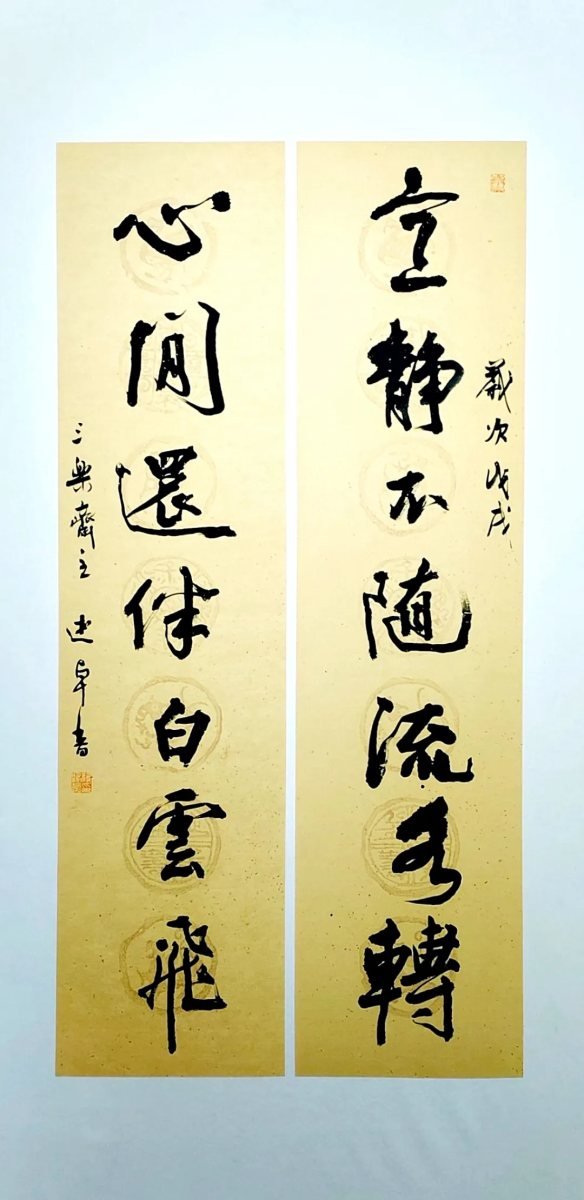 意靜不随流水轉
歲次戊戌
心閒還伴白雲飛
三樂齋主 書